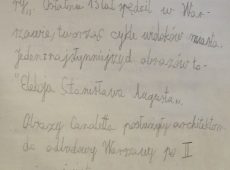 ry„. Ostatnie 13 lat spędził w War-
szawie, tworząc cykl widoków miasta.
Jeden z najsłynniejszych obrazów to-
"Elekcja Stanisława Augusta„.
Obrazy Canaletta posłużyły architektom
do odbudowy Warszawy po II